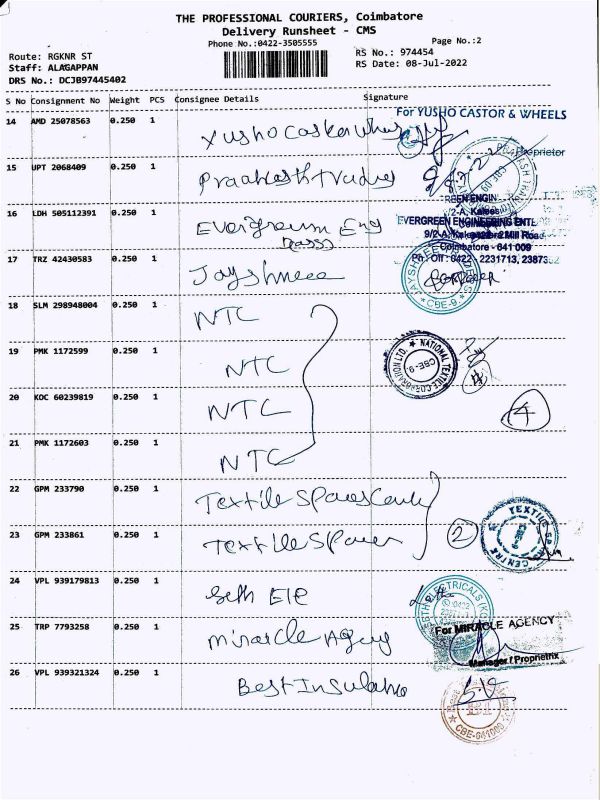 THE PROFESSIONAL COURIERS, Coimbatore
Delivery Runsheet - CMS
Phone No.:0422-3505555
Page No.:2
Route: RGKNR ST
Staff: ALAGAPPAN
DRS No.: DCJB97445402
RS No.: 974454
RS Date: 08-Jul-2022
S No Consignment No Weight PCS Consignee Details Signature
For YUSHO CASTOR & WHEELS
14 AMD 25078563 0.250 1 Yusho Castor
Proprietor
15 UPT 2068409 0.250 1 Praakash
16 LDH 505112391 0.250 1 Evergreen Eng
EVERGREEN ENGINEERING ENTE
Coimbatore - 641 009
Ph : Off : 0422 - 2231713, 2387362
17 TRZ 42430583 0.250 1 Jayshree
JAYSHREE CBE-9.
18 SLM 298948004 0.250 1 NTC
19 PMK 1172599 0.250 1 NTC
NATIONAL TEXTILE CORPORATION LTD. CBE-9
20 KOC 60239819 0.250 1 NTC
4
21 PMK 1172603 0.250 1 NTC
22 GPM 233790 0.250 1 Textile Spares
23 GPM 233861 0.250 1 Textile Spares
2
TEXTILE CENTRE
24 VPL 939179813 0.250 1 Seth Ele
25 TRP 7793258 0.250 1 Miracle Agency
For MIRACLE AGENCY
Manager / Proprietrix
26 VPL 939321324 0.250 1 Best Insulation
CBE-641009